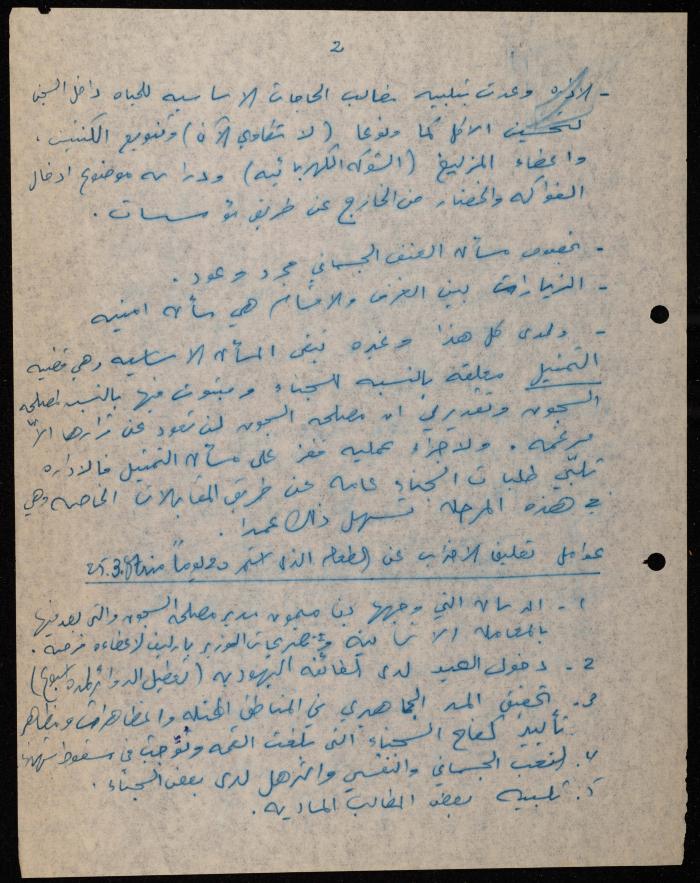 2
- الاداره وعدت بتلبيه مطالب الحاجات الاساسيه للحياه داخل السجن
لتحسين الاكل كما ونوعا (لا تنقاوي الآن) وتنويع الكنتين.
واعطاء المزليغ (الشوكه الكهربائيه) ودراسه موضوع ادخال
الفواكه والخضار من الخارج عن طريق مؤسسات.
- بخصوص مسأله العنف الجسماني مجرد وعود.
- الزيارات بين الغرف والاقسام هي مسأله امنيه
- ولدى كل هذا وغيره تبقى المسأله الاساسيه وهي قضيه
التمثيل معلقه بالنسبه للسجناء ومبتوت فيها بالنسبه لمصلحه
السجون وتقديري ان مصلحه السجون لن تعود عن قرارها الا
مرغمه. ولاجراء عمليه قفز على مسأله التمثيل فالاداره
تلبي طلبات السجناء عامه عن طريق المقابلات الخاصه وهي
في هذه المرحله تسهل ذلك عمدا.
عوامل تعليق الاضراب عن الطعام الذي استمر يوماً منذ 25.3.87
1- الرساله التي وجهها مدير مصلحه السجون والتي يعد فيها
بالمعامله الانسانيه وتصريحات الوزير بارليف لاعطاءه فرصه.
2- دخول العيد لدى الطائفه اليهوديه (تعطيل الدوائر لمدة اسبوع)
3- تحقيق المد الجماهيري في المناطق المحتله والمظاهرات ومظاهر
تأييد كفاح السجناء التي بلغت القمه وتوجت في سقوط شهداء
4. التعب الجسماني والنفسي والترهل لدى بعض السجناء.
5. تلبيه بعض المطالب الماديه.